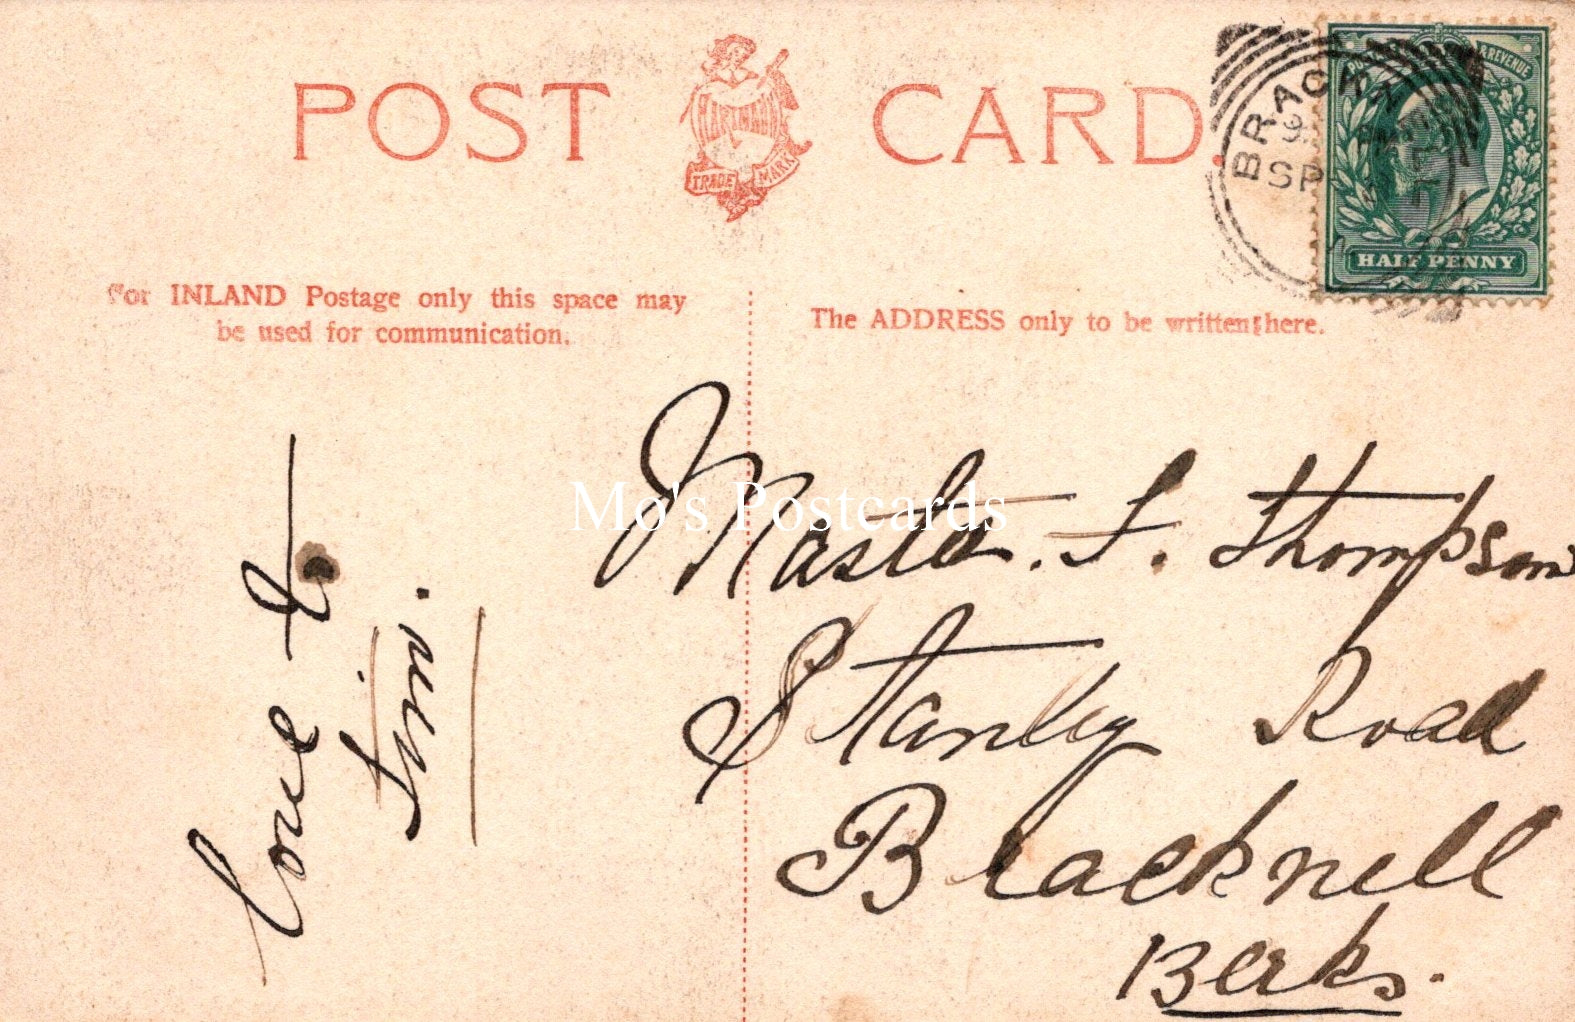 POST CARD.
HARTMANN
TRADE MARK
BRACKN
SP
REVENUE
HALF PENNY
For INLAND Postage only this space may
be used for communication.
The ADDRESS only to be written here.
Love to
Jim.
Master. F. Thompson
Stanley Road
Bracknell
Berks.
Mo's Postcards